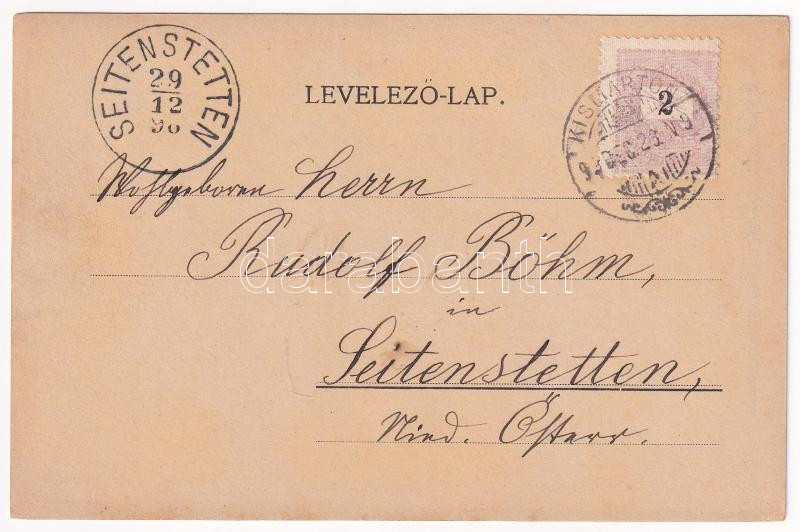 SEITENSTETTEN
29
12
98
LEVELEZŐ-LAP.
2
KISMARTON
DEC. 28.
Wohlgeboren Herrn
Rudolf Böhm,
in
Seitenstetten,
Nied. Österr.
darabanth